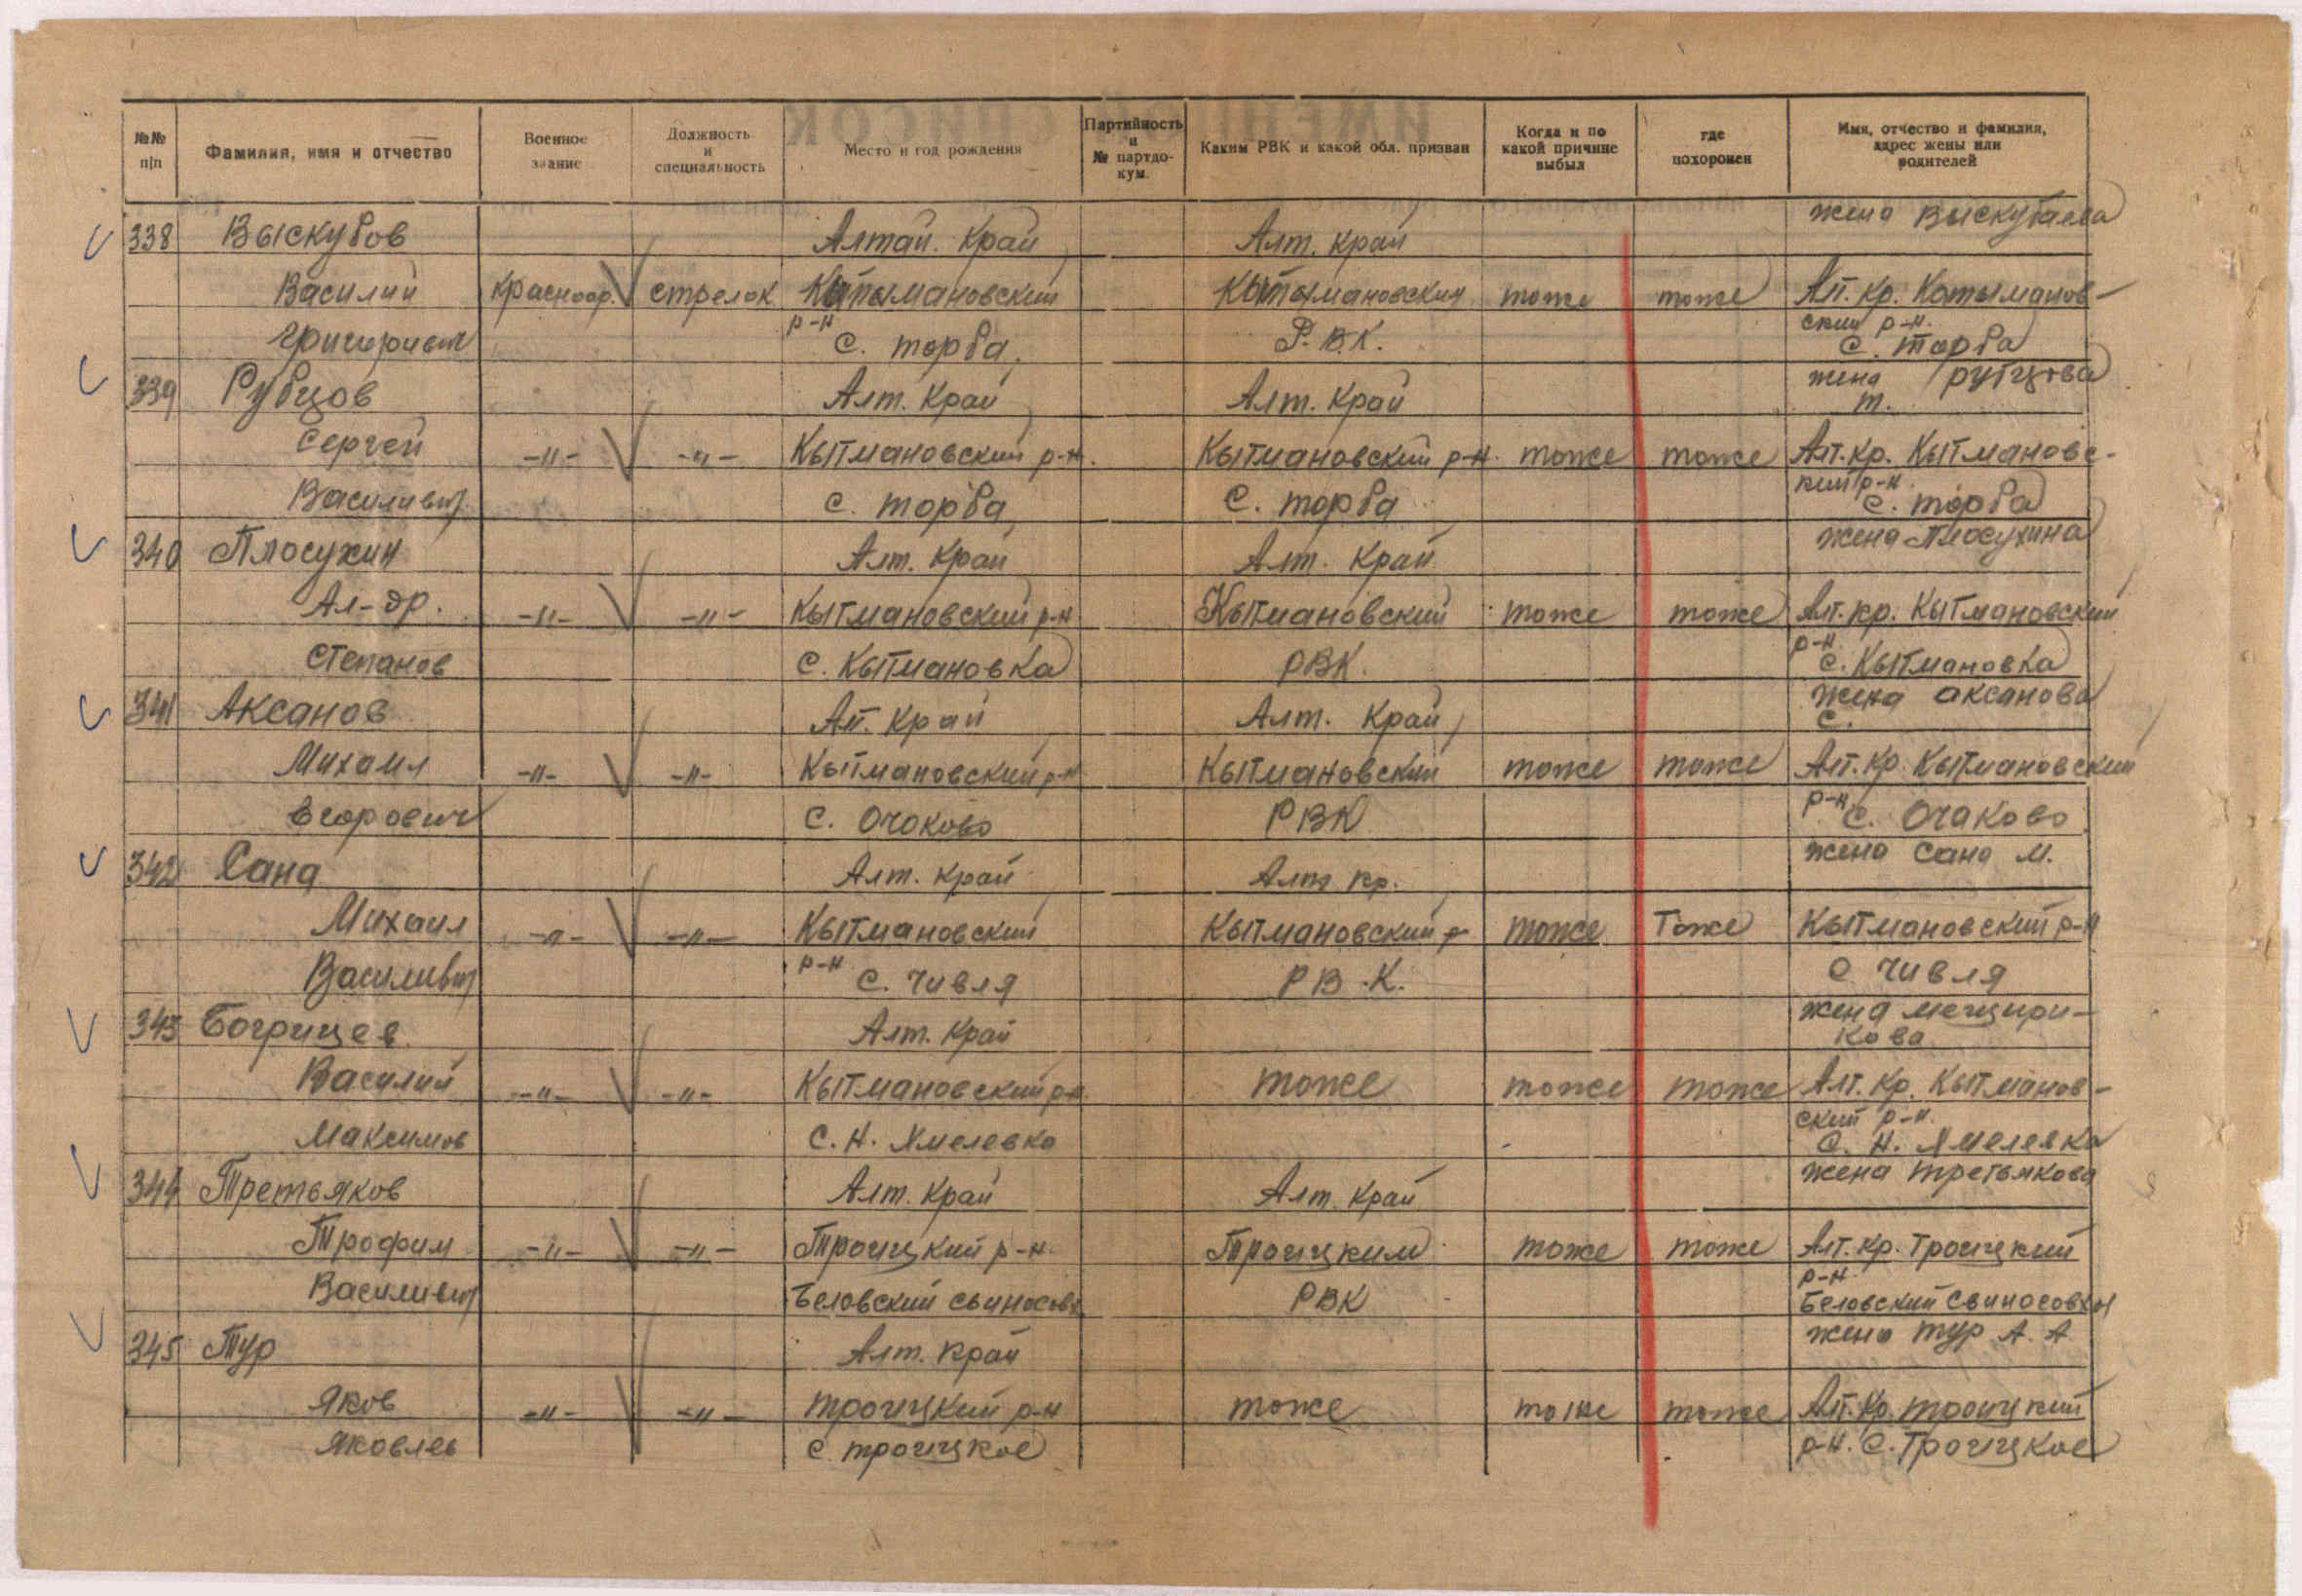 №№ п/п
Фамилия, имя и отчество
Военное звание
Должность и специальность
Место и год рождения
Партийность и № партдокум.
Каким РВК и какой обл. призван
Когда и по какой причине выбыл
где похоронен
Имя, отчество и фамилия, адрес жены или родителей
жена Выскубаева
338 Выскубов Алтай. Край Алт. край
Василий красноар. стрелок Катымановский Катымановский тоже тоже Ал. кр. Катыманов-
р-н ский р-н.
Григориевич с. торба. Р.В.К. с. торба
жена Рубцова
339 Рубцов Алт. Край Алт. Край т.
Сергей -"- -"- Кытмановский р-н. Кытмановский р-н. тоже тоже Ал.кр. Кытмановс-
кий р-н.
Василивич с. торба с. торба с. торба
жена Плосухина
340 Плосухин Алт. край Алт. Край
Ал-др. -"- -"- Кытмановский р-н Кытмановский тоже тоже Ал. кр. Кытмановский
р-н
Степанов с. Кытмановка РВК. с. Кытмановка
жена аксанова
341 Аксанов Ал. край Алт. Край с.
Михаил -"- -"- Кытмановский р-н Кытмановский тоже тоже Ал. кр. Кытмановский
р-н
Егорович с. Очаково РВК с. Очаково
жена Сана М.
342 Сана Алт. край Алт кр.
Михаил -"- -"- Кытмановский Кытмановский р- тоже Тоже Кытмановский р-н
р-н
Василивич с. Чивля РВ.К. с Чивля
жена мещири-
343 Богрицев Алт. край кова
Василий -"- -"- Кытмановский р-н тоже тоже тоже Алт. Кр. Кытманов-
ский р-н.
Максимов с. Н. Хмелевка с. Н. Хмелевка
жена третьякова
344 Третьяков Алт. край Алт. край
Трофим -"- -"- Троицкий р-н. Троицким тоже тоже Ал. Кр. Троицкий
р-н.
Василивич Беловский свиносовх. РВК Беловский свиносовхоз
жена тур А. А
345 Тур Алт. край
Яков -"- -"- троицкий р-н тоже тоже тоже Ал. Кр. троицкий
Яковлев с троицкое р-н. с. Троицкое